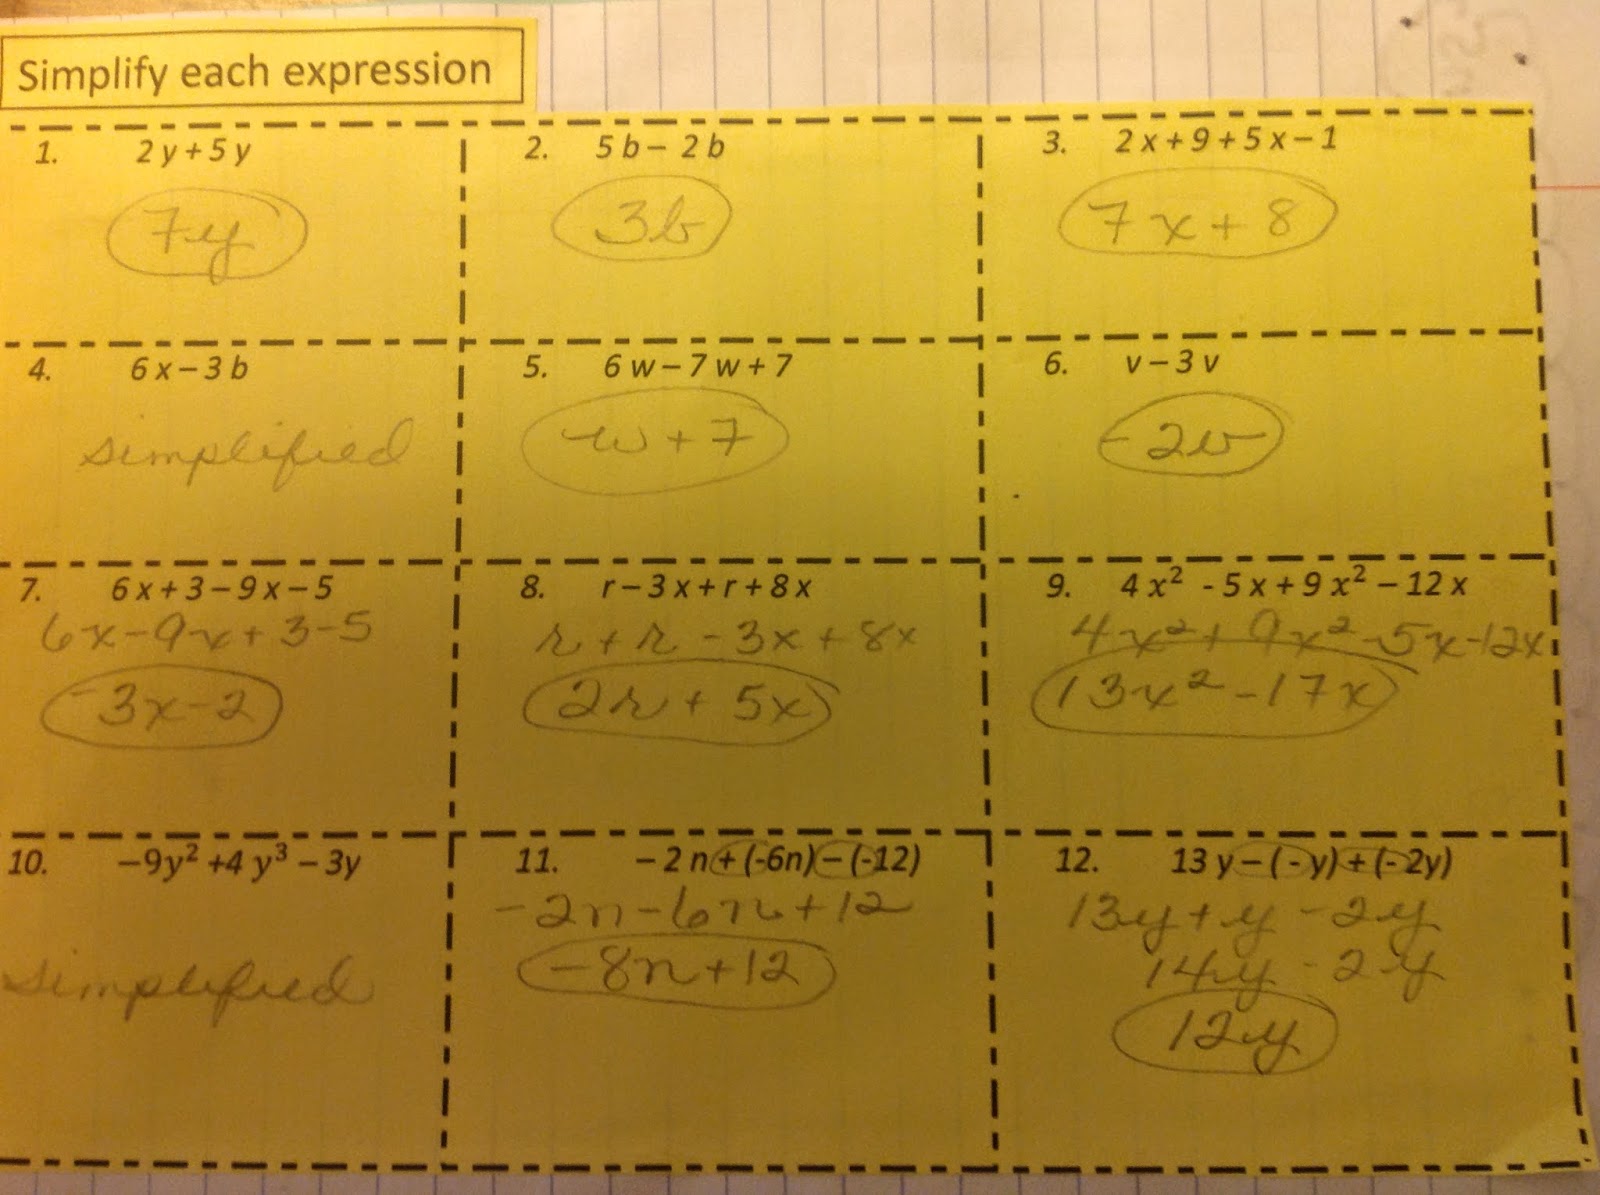 Simplify each expression
1. 2y+5y
7y
2. 5b – 2b
3b
3. 2x+9+5x–1
7x+8
4. 6x–3b
simplified
5. 6w–7w+7
-w+7
6. v–3v
-2v
7. 6x+3–9x–5
6x-9x+3-5
-3x-2
8. r–3x+r+8x
r+r-3x+8x
2r+5x
9. 4x² -5x+9x²–12x
4x²+9x²-5x-12x
13x²-17x
10. –9y²+4y³–3y
simplified
11. –2n+(-6n)–(-12)
-2n-6n+12
-8n+12
12. 13y–(-y)+(-2y)
13y+y-2y
14y-2y
12y